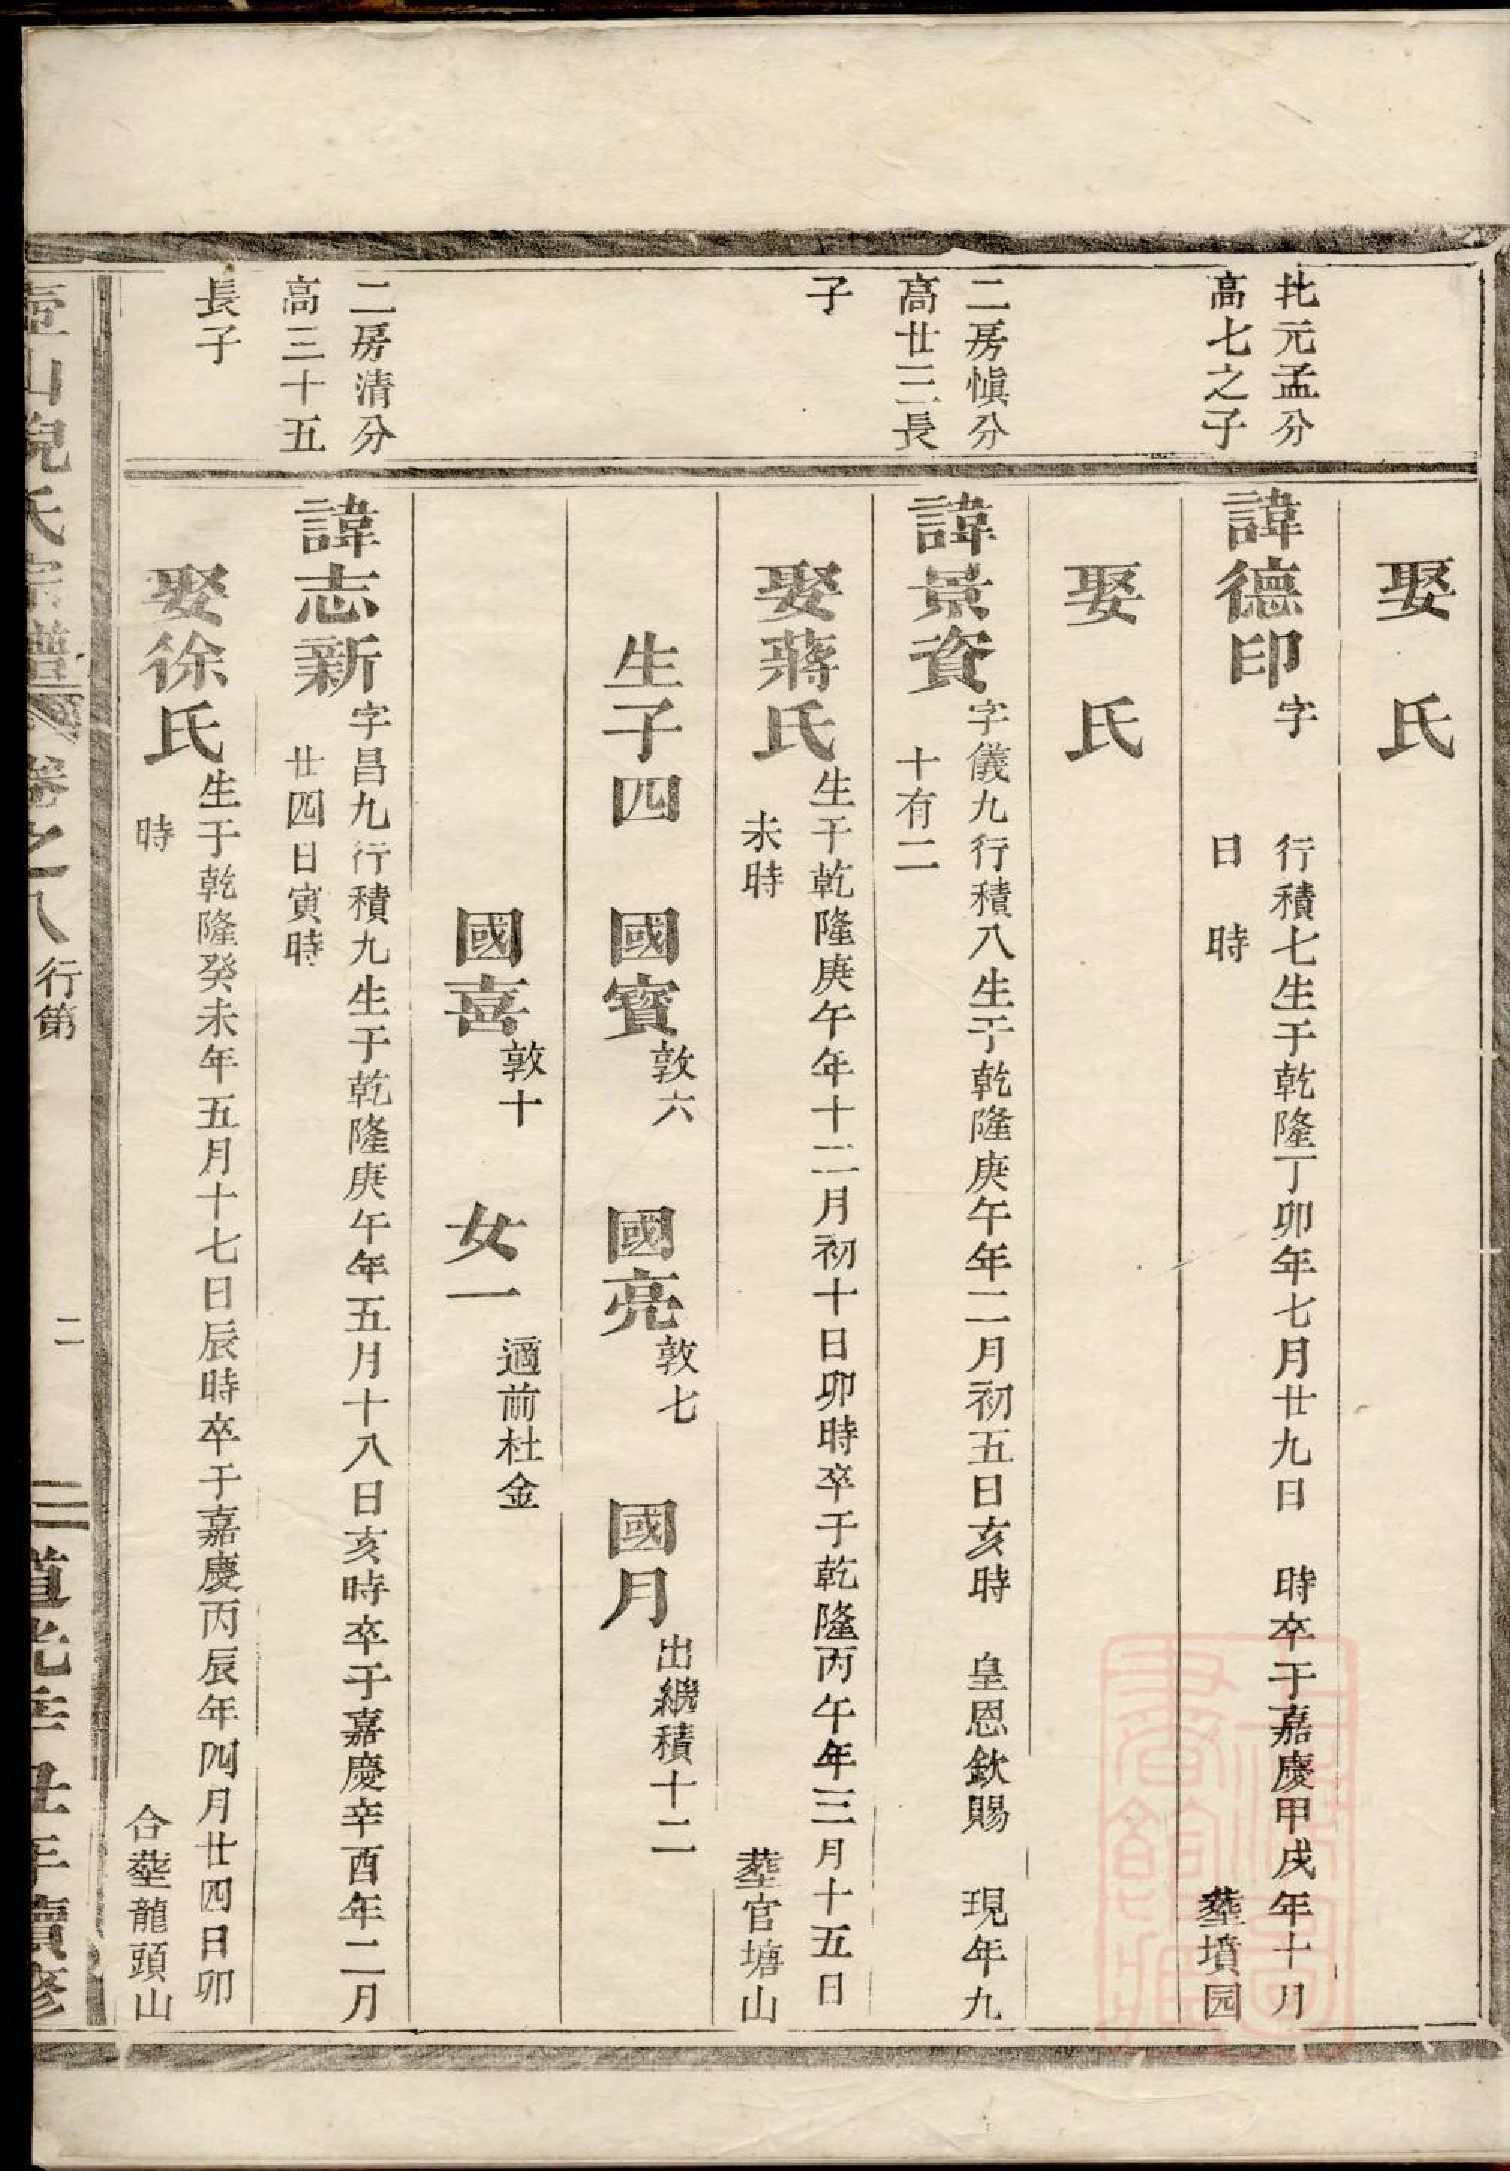 娶　氏
圠元孟分
高七之子
諱德印
字　行積七生于乾隆丁卯年七月廿九日　時卒于嘉慶甲戌年十月
日　時　塟墳园
娶　氏
二房慎分
高廿三長
子
諱景資
字儀九行積八生于乾隆庚午年二月初五日亥時　皇恩欽賜　現年九
十有二
娶蔣氏
生于乾隆庚午年十二月初十日卯時卒于乾隆丙午年三月十五日
未時　塟官塘山
生子四　國寶敦六　國亮敦七　國月出繼積十二
國喜敦十　女一適前杜金
二房清分
高三十五
長子
諱志新
字昌九行積九生于乾隆庚午年五月十八日亥時卒于嘉慶辛酉年二月
廿四日寅時
娶徐氏
生于乾隆癸未年五月十七日辰時卒于嘉慶丙辰年四月廿四日卯
時　合塟龍頭山
壺山倪氏宗譜　卷之八　行第　二　道光辛丑年續修